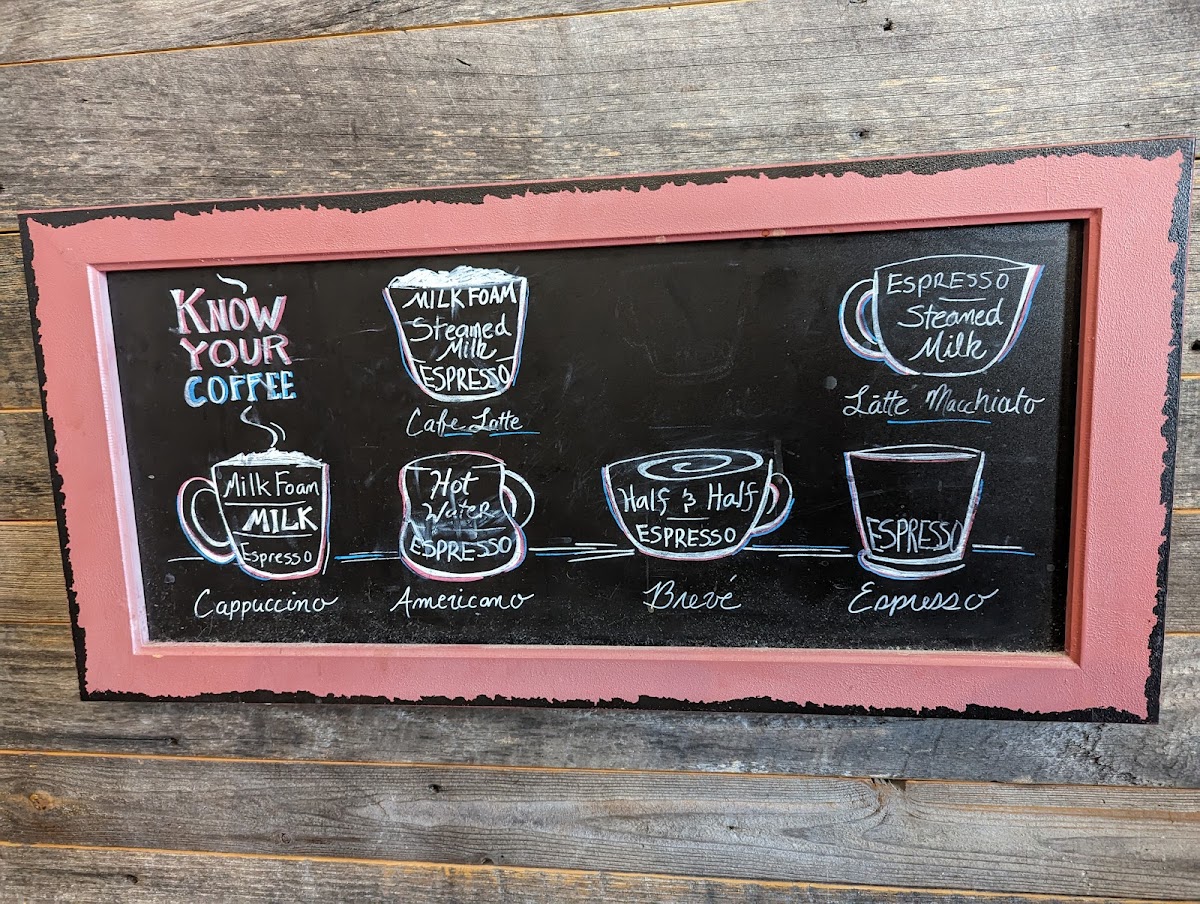 KNOW
YOUR
COFFEE
MILK FOAM
Steamed
Milk
ESPRESSO
Cafe Latte
ESPRESSO
Steamed
Milk
Latté Macchiato
Milk Foam
MILK
Espresso
Cappuccino
Hot
Water
ESPRESSO
Americano
Half & Half
ESPRESSO
Brevé
ESPRESSO
Espresso